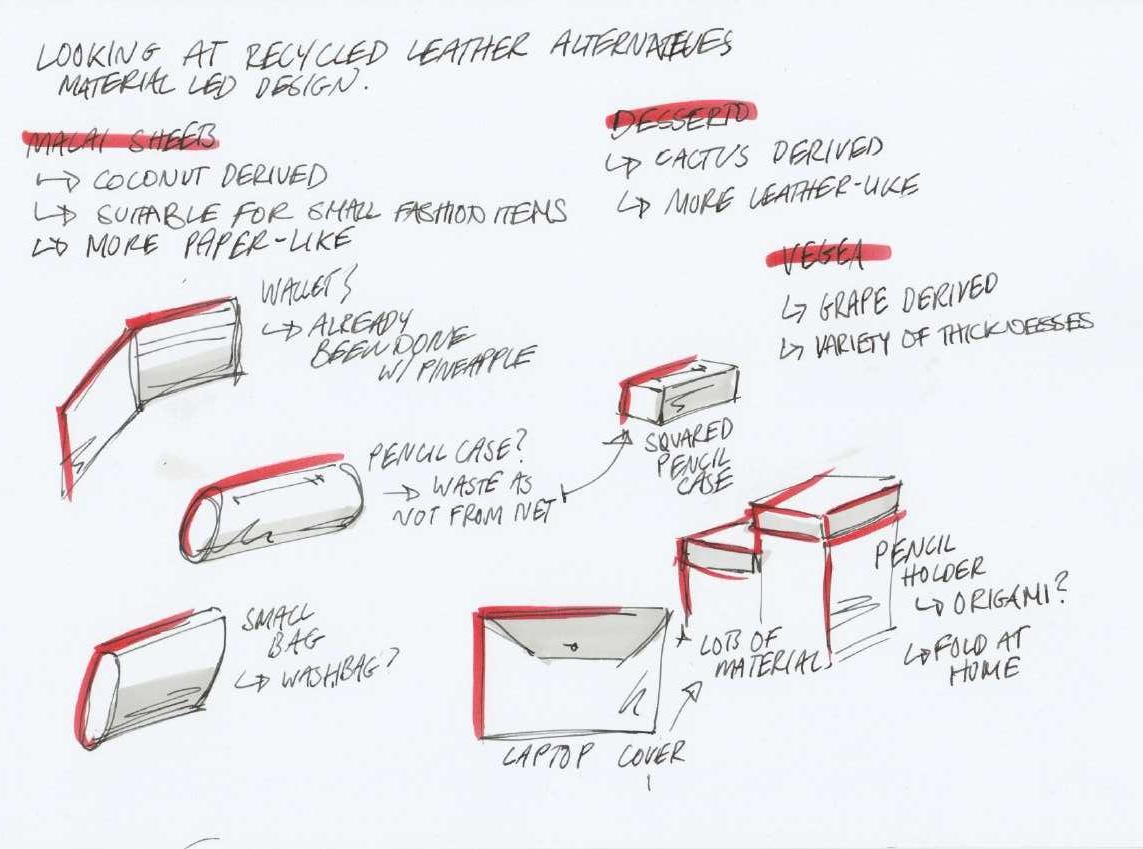 LOOKING AT RECYCLED LEATHER ALTERNATEVES
MATERIAL LED DESIGN.
MALAI SHEETS
↳ COCONUT DERIVED
↳ SUITABLE FOR SMALL FASHION ITEMS
↳ MORE PAPER-LIKE
DESSERTO
↳ CACTUS DERIVED
↳ MORE LEATHER-LIKE
VEGEA
↳ GRAPE DERIVED
↳ VARIETY OF THICKNESSES
WALLETS
↳ ALREADY
BEEN DONE
W/ PINEAPPLE
PENCIL CASE?
→ WASTE AS
NOT FROM NET
SQUARED
PENCIL
CASE
PENCIL
HOLDER
↳ ORIGAMI?
↳ FOLD AT
HOME
SMALL
BAG
↳ WASHBAG?
LOTS OF
MATERIAL
LAPTOP COVER